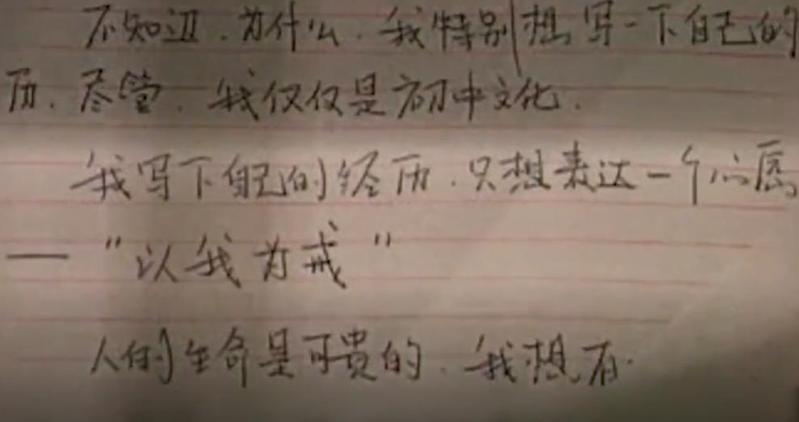 不知道.为什么.我特别想写一下自己的
历.尽管.我仅仅是初中文化.
我写下自己的经历.只想表达一个心愿
—"以我为戒"
人的生命是可贵的.我想在